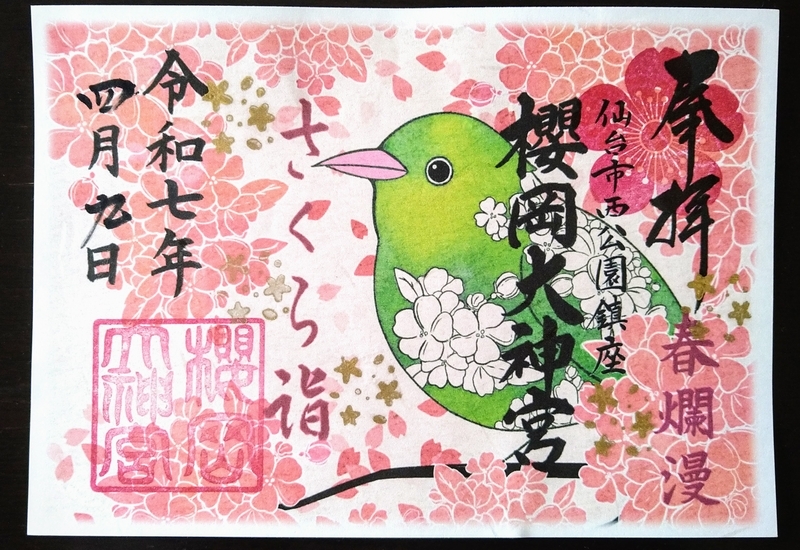 奉拝
春爛漫
仙台市西公園鎮座
櫻岡大神宮
さくら詣
令和七年
四月九日
櫻岡
大神宮